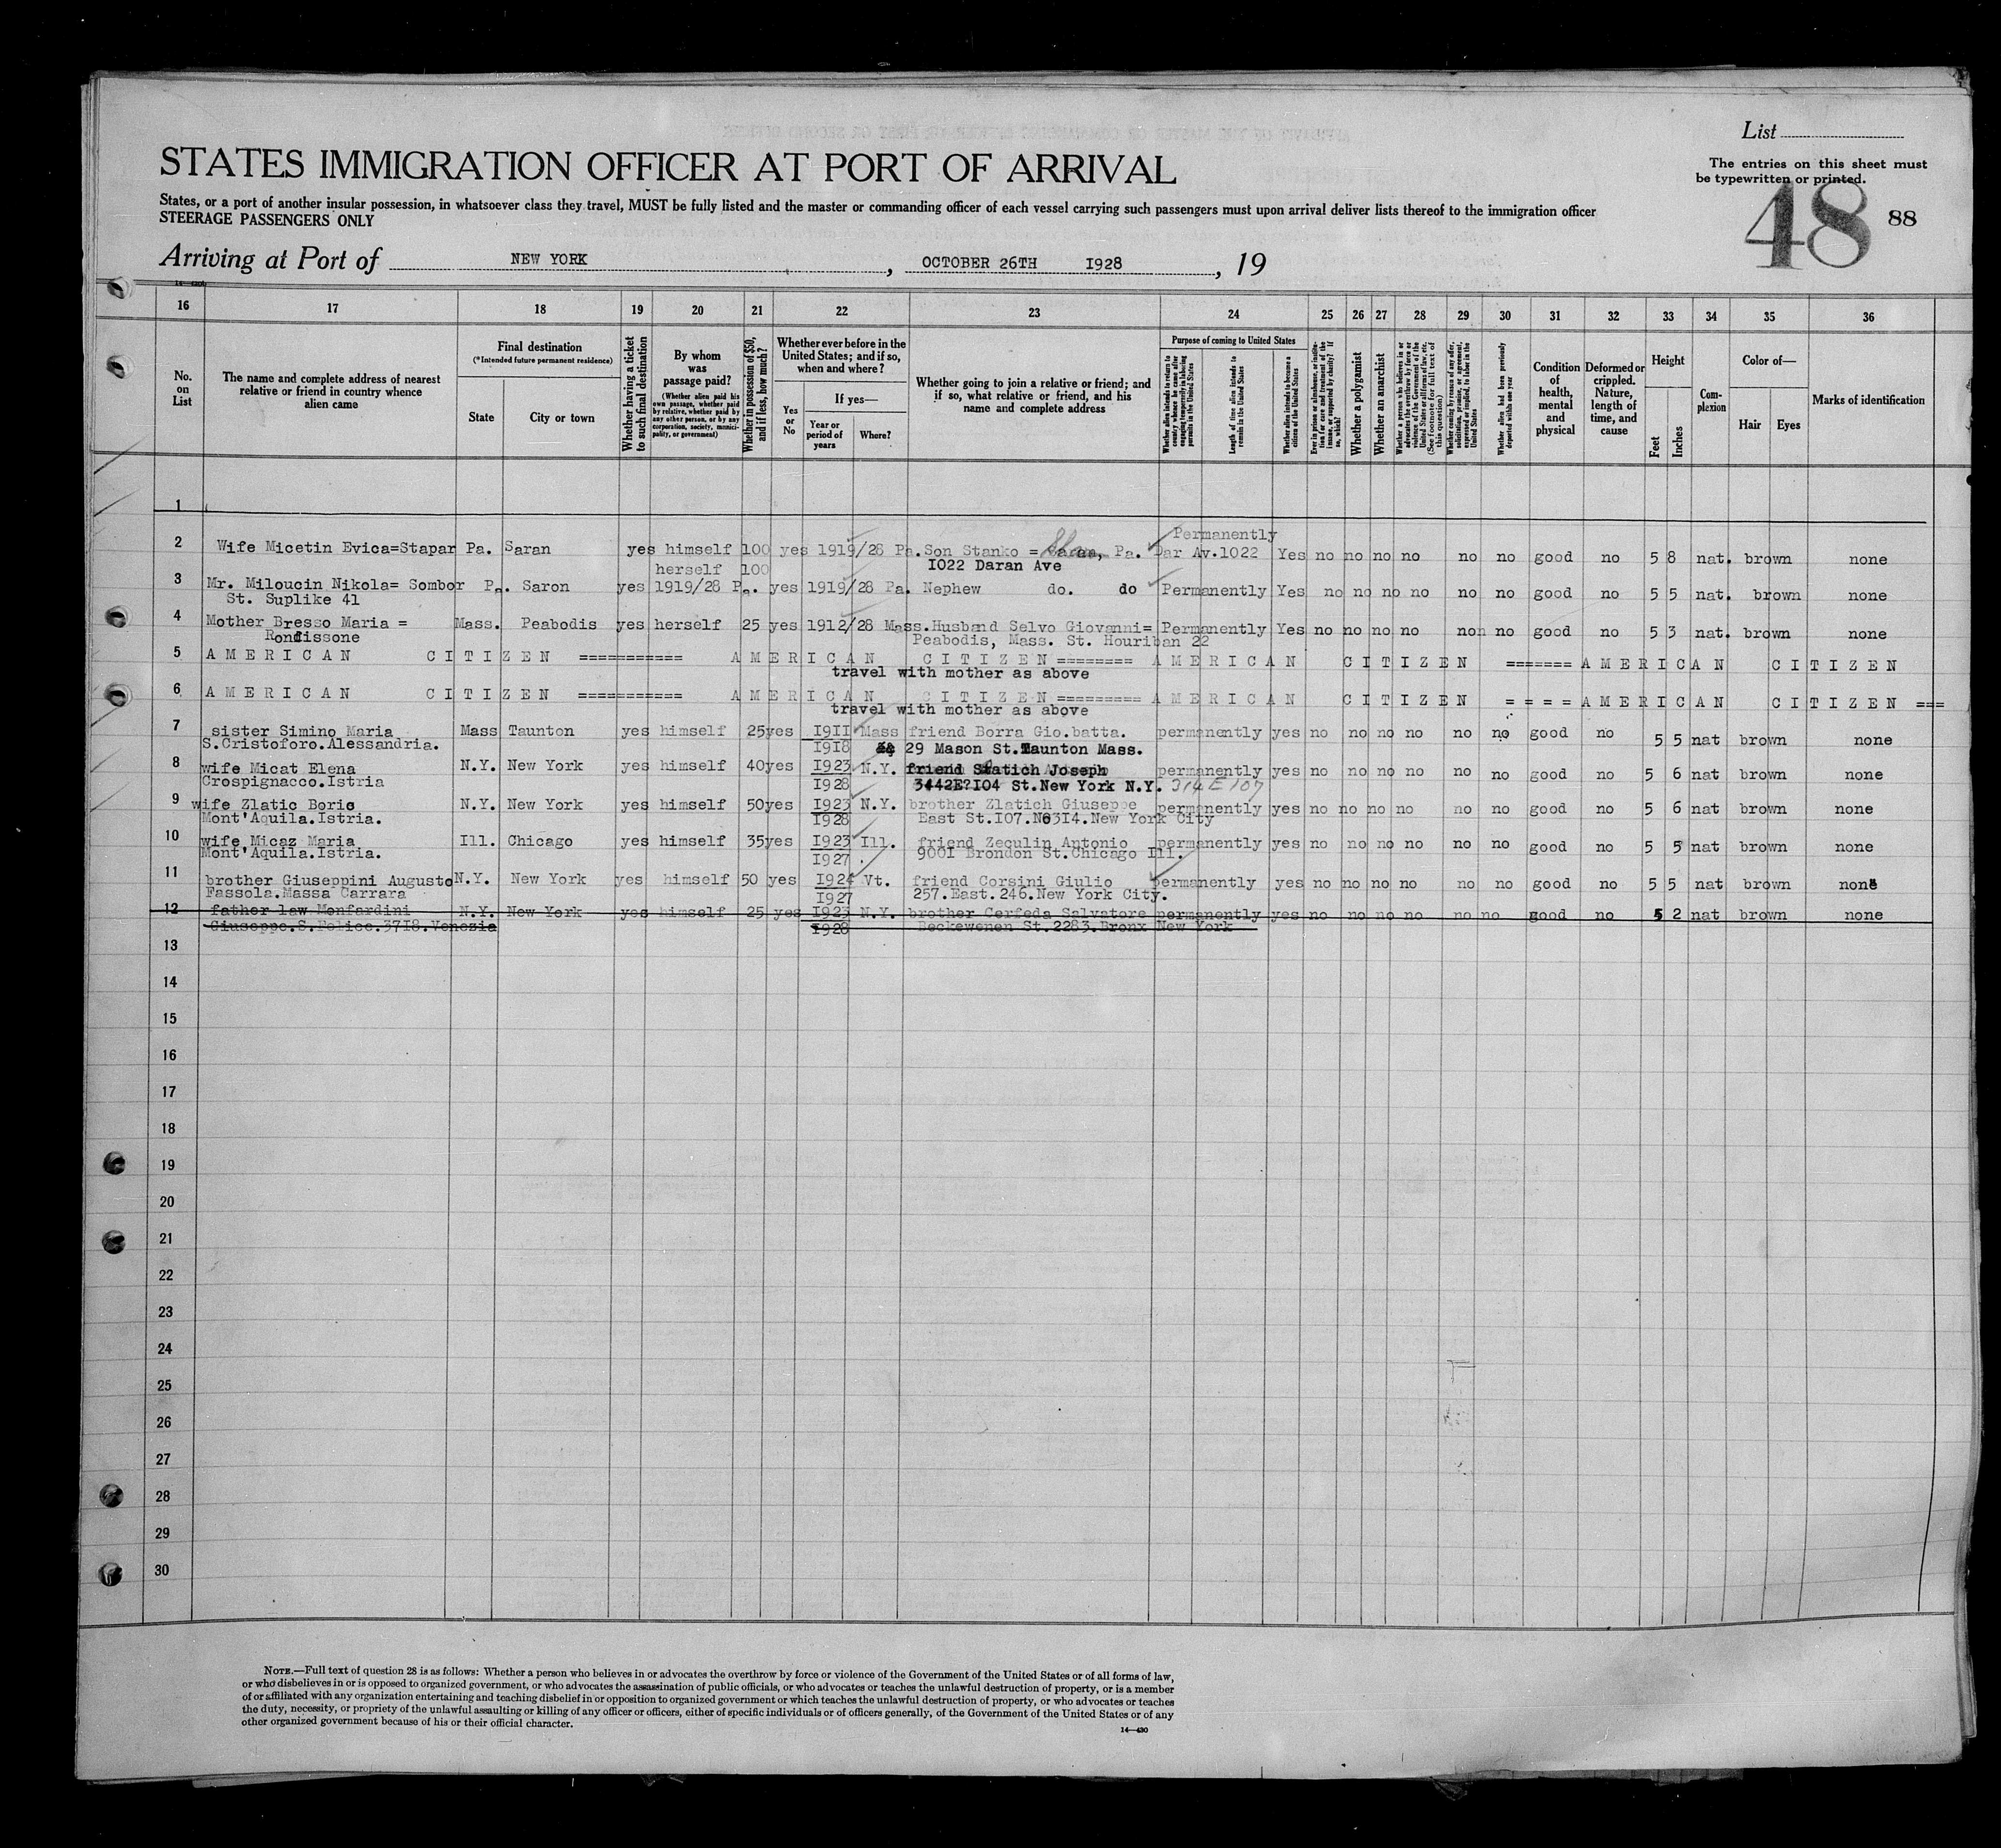 List
The entries on this sheet must
be typewritten or printed.
STATES IMMIGRATION OFFICER AT PORT OF ARRIVAL
48 88
States, or a port of another insular possession, in whatsoever class they travel, MUST be fully listed and the master or commanding officer of each vessel carrying such passengers must upon arrival deliver lists thereof to the immigration officer
STEERAGE PASSENGERS ONLY
Arriving at Port of NEW YORK , OCTOBER 26TH 1928 , 19
16 17 18 19 20 21 22 23 24 25 26 27 28 29 30 31 32 33 34 35 36
No. on List
The name and complete address of nearest relative or friend in country whence alien came
Final destination
(*Intended future permanent residence)
State
City or town
Whether having a ticket to such final destination
By whom was passage paid?
(Whether alien paid his own passage, whether paid by relative, whether paid by any other person, or by any corporation, society, municipality, or government)
Whether in possession of $50, and if less, how much?
Whether ever before in the United States; and if so, when and where?
Yes or No
If yes—
Year or period of years
Where?
Whether going to join a relative or friend; and if so, what relative or friend, and his name and complete address
Purpose of coming to United States
Whether alien intends to return to country whence he came after engaging temporarily in laboring pursuits in the United States
Length of time alien intends to remain in the United States
Whether alien intends to become a citizen of the United States
Whether a polygamist
Whether an anarchist
Whether alien had been previously deported within one year
Condition of health, mental and physical
Deformed or crippled. Nature, length of time, and cause
Height
Feet
Inches
Complexion
Color of—
Hair
Eyes
Marks of identification
1
2 Wife Micetin Evica=Stapar Pa. Saran yes himself 100 yes 1919/28 Pa. Son Stanko = Pa. Dar Av.1022 Permanently Yes no no no no no no good no 5 8 nat. brown none
herself 100 1022 Daran Ave
3 Mr. Miloucin Nikola= Sombor Pa. Saron yes 1919/28 Pa. yes 1919/28 Pa. Nephew do. do Permanently Yes no no no no no no good no 5 5 nat. brown none
St. Suplike 41
4 Mother Bresso Maria = Mass. Peabodis yes herself 25 yes 1912/28 Mass. Husband Selvo Giovanni= Permanently Yes no no no no no no good no 5 3 nat. brown none
Rondissone Peabodis, Mass. St. Houriban 22
5 AMERICAN CITIZEN =========== AMERICAN CITIZEN ======== AMERICAN CITIZEN ======= AMERICAN CITIZEN
travel with mother as above
6 AMERICAN CITIZEN =========== AMERICAN CITIZEN ========= AMERICAN CITIZEN ==== AMERICAN CITIZEN ===
travel with mother as above
7 sister Simino Maria Mass Taunton yes himself 25 yes 1911 Mass friend Borra Gio.batta. permanently yes no no no no no no good no 5 5 nat brown none
S.Cristoforo.Alessandria. 1918 29 Mason St.Taunton Mass.
8 wife Micat Elena N.Y. New York yes himself 40 yes 1923 N.Y. friend Statich Joseph permanently yes no no no no no no good no 5 6 nat brown none
Crospignacco.Istria 1928 3442E?104 St.New York N.Y. 314 E 107
9 wife Zlatic Boric N.Y. New York yes himself 50 yes 1923 N.Y. brother Zlatich Giuseppe permanently yes no no no no no no good no 5 6 nat brown none
Mont'Aquila.Istria. 1928 East St.107.No314.New York City
10 wife Micaz Maria Ill. Chicago yes himself 35 yes 1923 Ill. friend Zequlin Antonio permanently yes no no no no no no good no 5 5 nat brown none
Mont'Aquila.Istria. 1927 9001 Brondon St.Chicago Ill.
11 brother Giuseppini Augusto N.Y. New York yes himself 50 yes 1924 Vt. friend Corsini Giulio permanently yes no no no no no no good no 5 5 nat brown none
Fassola.Massa Carrara 1927 257.East.246.New York City.
12 father law Monfardini N.Y. New York yes himself 25 yes 1923 N.Y. brother Cerfeda Salvatore permanently yes no no no no no no good no 5 2 nat brown none
Giuseppe.S.Felice.3718.Venezia 1928 Beckewenen St.2283.Bronx New York
13
14
15
16
17
18
19
20
21
22
23
24
25
26
27
28
29
30
NOTE.—Full text of question 28 is as follows: Whether a person who believes in or advocates the overthrow by force or violence of the Government of the United States or of all forms of law,
or who disbelieves in or is opposed to organized government, or who advocates the assassination of public officials, or who advocates or teaches the unlawful destruction of property, or is a member
of or affiliated with any organization entertaining and teaching disbelief in or opposition to organized government or which teaches the unlawful destruction of property, or who advocates or teaches
the duty, necessity, or propriety of the unlawful assaulting or killing of any officer or officers, either of specific individuals or of officers generally, of the Government of the United States or of any
other organized government because of his or their official character.
14—430